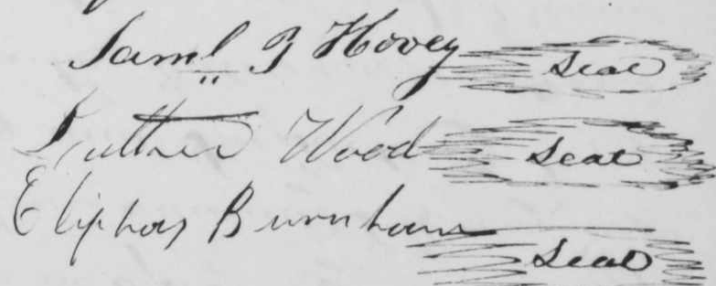 Saml B Hovey Seal
Luther Wood Seal
Eliphas Burnham Seal